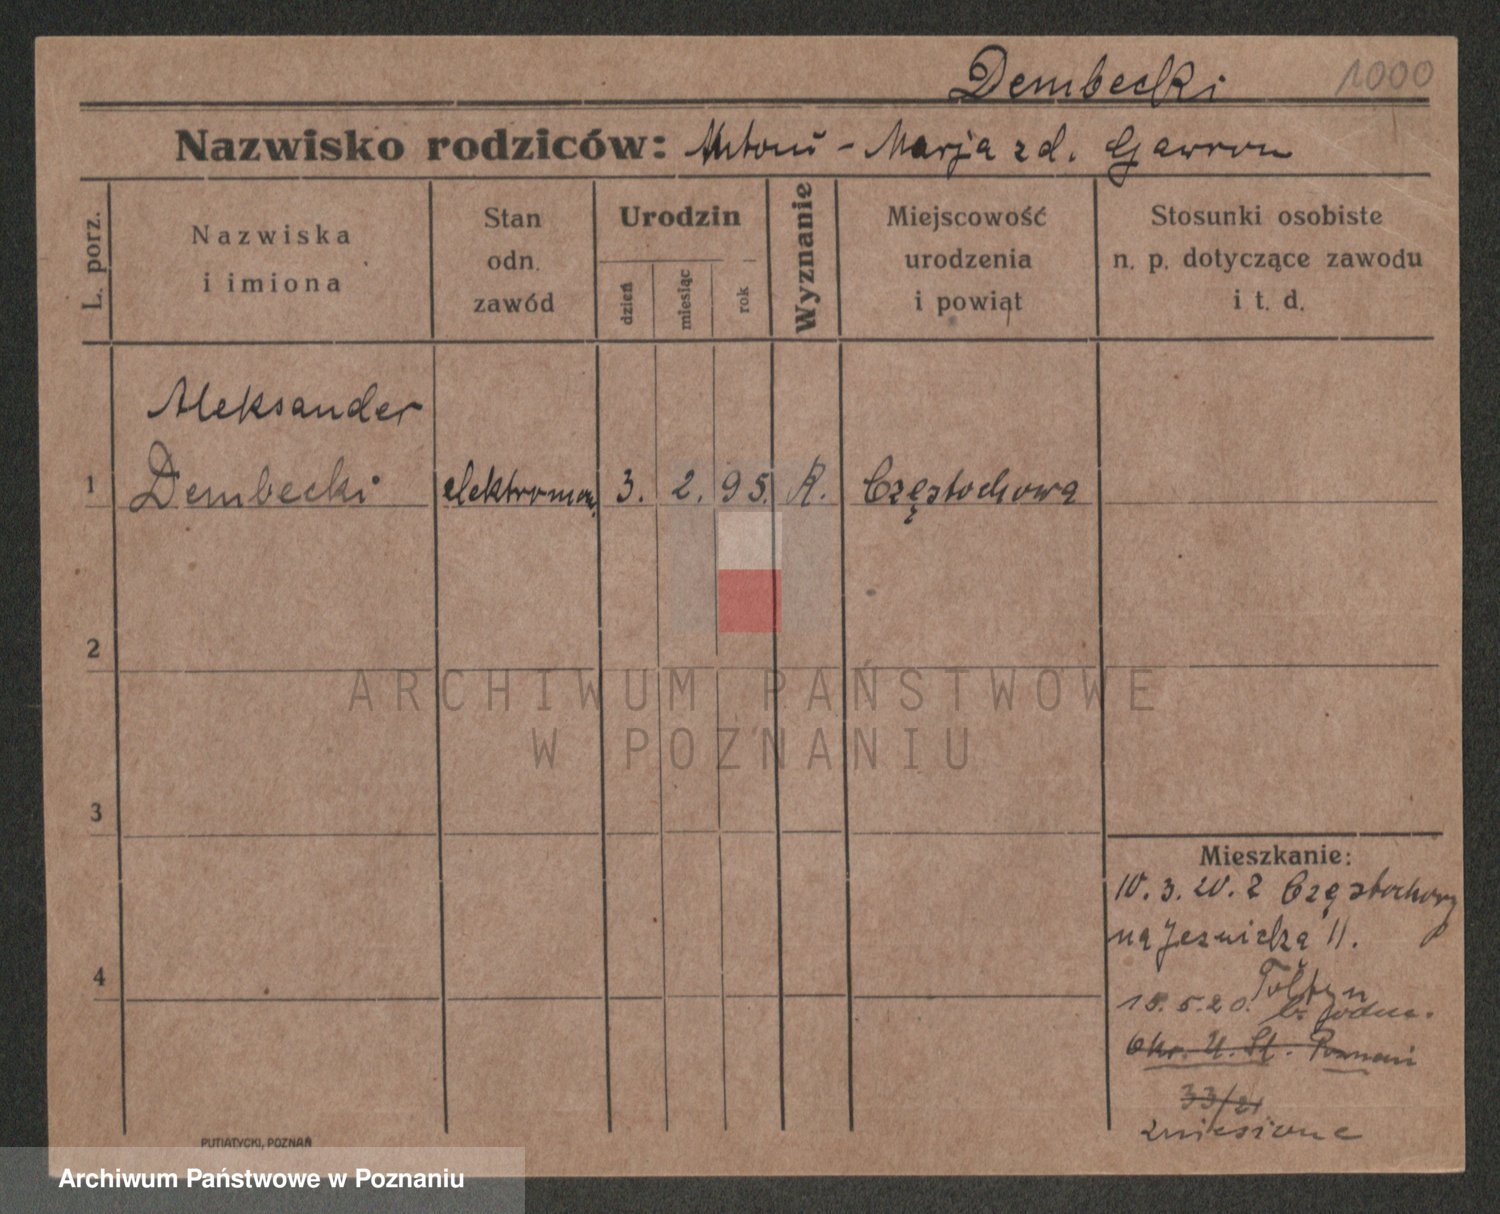 Dembecki 1000
Nazwisko rodziców: Antoni - Marja zd. Gawron
L. porz.
Nazwiska
i imiona
Stan
odn.
zawód
Urodzin
dzień
miesiąc
rok
Wyznanie
Miejscowość
urodzenia
i powiat
Stosunki osobiste
n. p. dotyczące zawodu
i t. d.
Aleksander
1 Dembecki elektromon. 3. 2. 95. R. Częstochowa
2
ARCHIWUM PAŃSTWOWE
W POZNANIU
3
Mieszkanie:
10. 3. 20. z Częstochowy
na Jeżycka 11.
4
15. 5. 20.
Okr. U. St. Poznań
33/21
zniesione
PUTIATYCKI, POZNAŃ
Archiwum Państwowe w Poznaniu